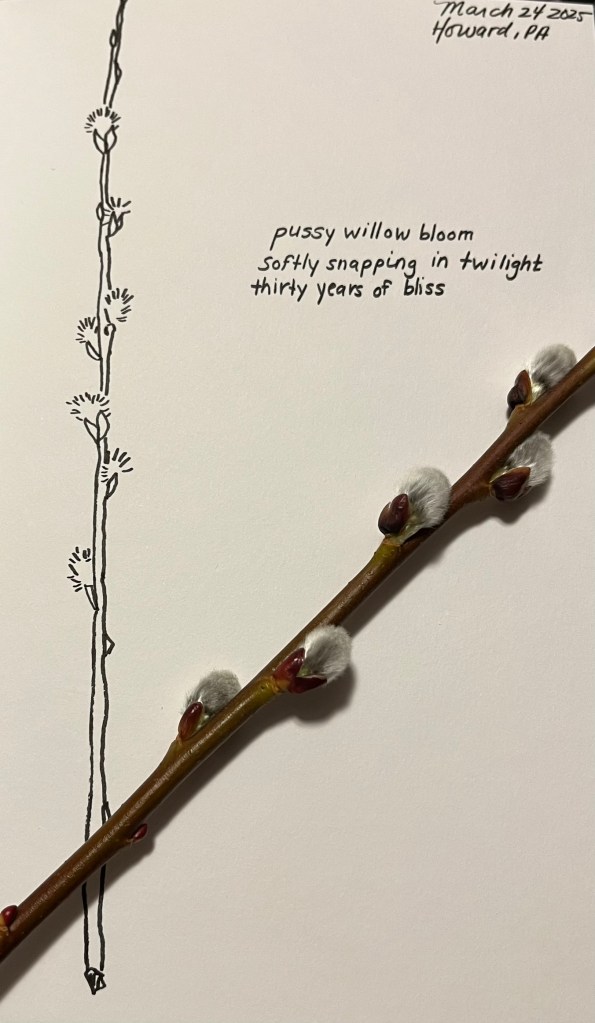 March 24 2025
Howard, PA
pussy willow bloom
softly snapping in twilight
thirty years of bliss